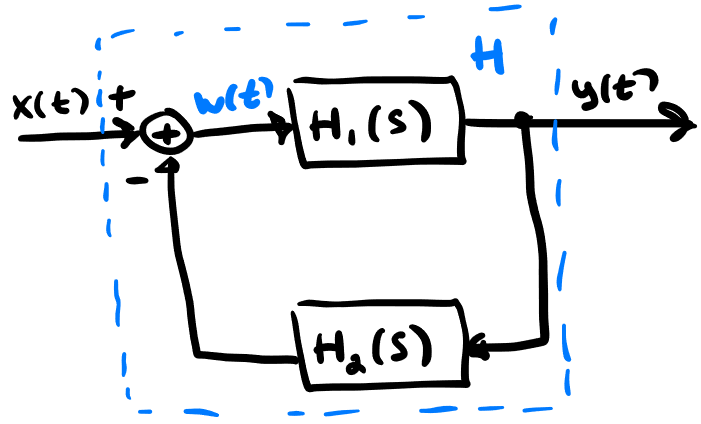 H
x(t) + w(t) H₁(S) y(t)
+
-
H₂(S)